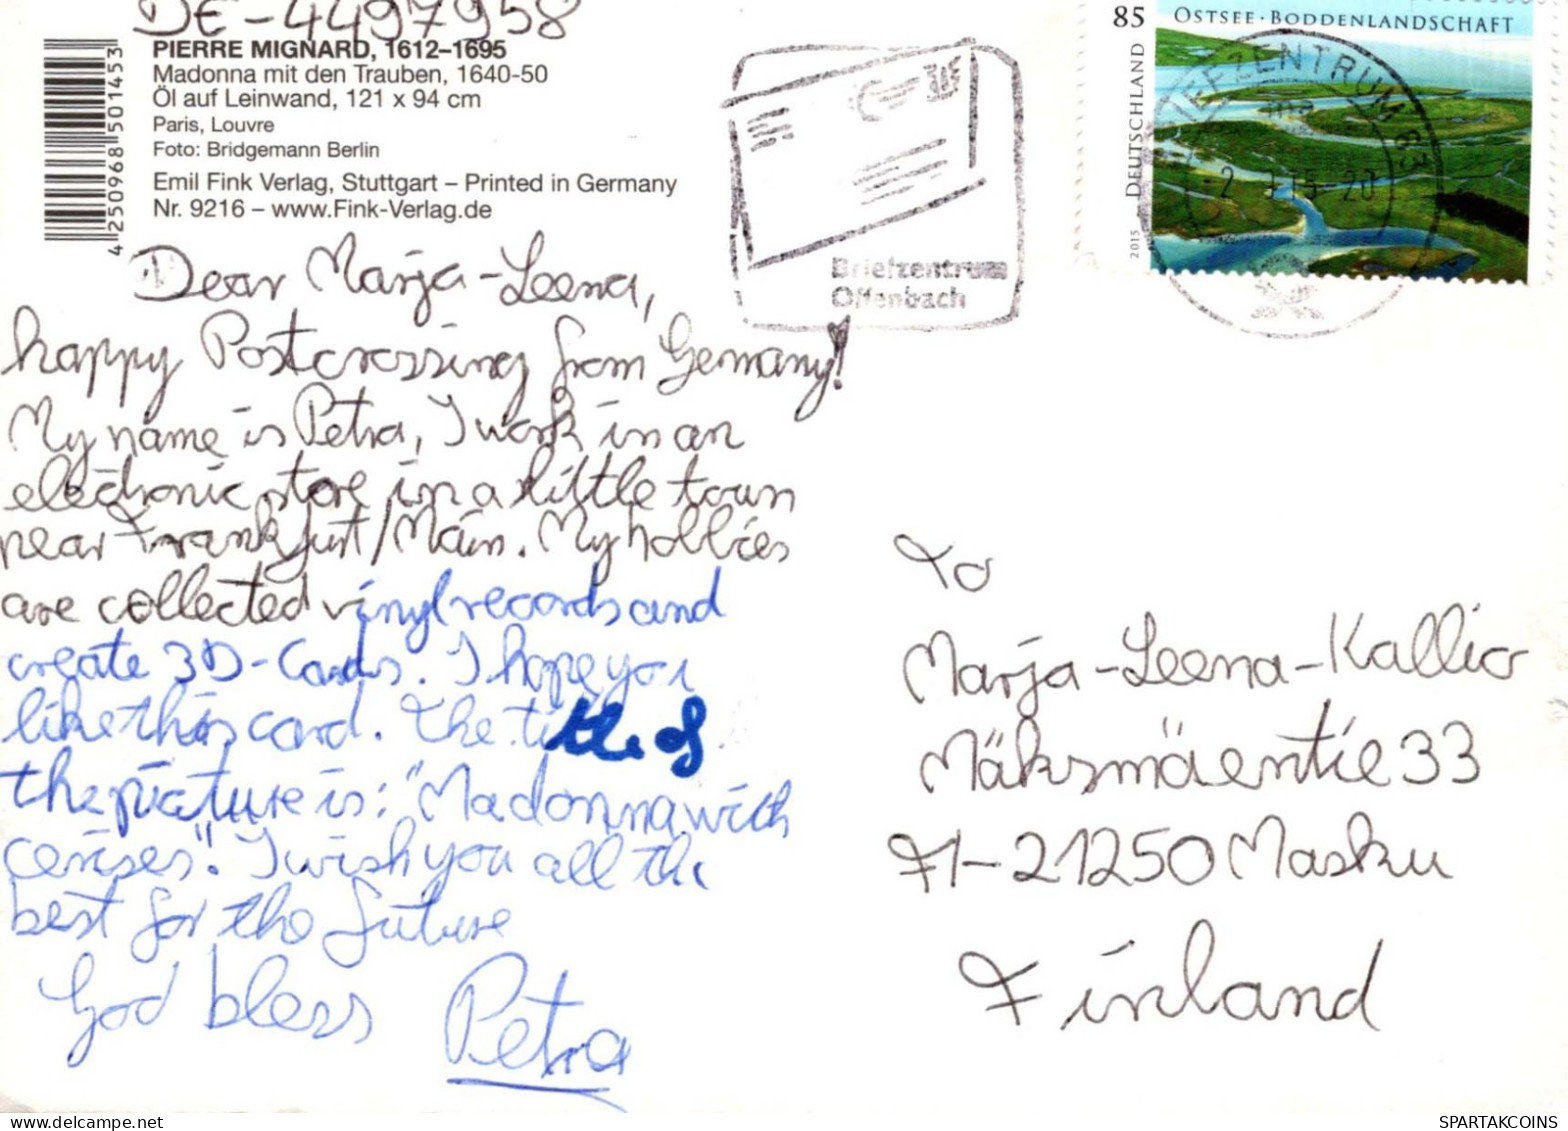 DE-4497958
PIERRE MIGNARD, 1612–1695
Madonna mit den Trauben, 1640-50
Öl auf Leinwand, 121 x 94 cm
Paris, Louvre
Foto: Bridgemann Berlin
Emil Fink Verlag, Stuttgart – Printed in Germany
Nr. 9216 – www.Fink-Verlag.de
4 250968 501453
Dear Marja-Leena,
happy Postcrossing from Germany!
My name is Petra, I work in an
electronic store in a little town
near Frankfurt/Main. My hobbies
are collected vinyl records and
create 3D-Cards. I hope you
like this card. The title of
the picture is: "Madonna with
cerises". I wish you all the
best for the future
God bless Petra
Briefzentrum
Offenbach
85 OSTSEE·BODDENLANDSCHAFT
DEUTSCHLAND
2015
BRIEFZENTRUM 63
To
Marja-Leena-Kallio
Mäksmäentie 33
FI-21250 Masku
Finland
SPARTAKCOINS
www.delcampe.net